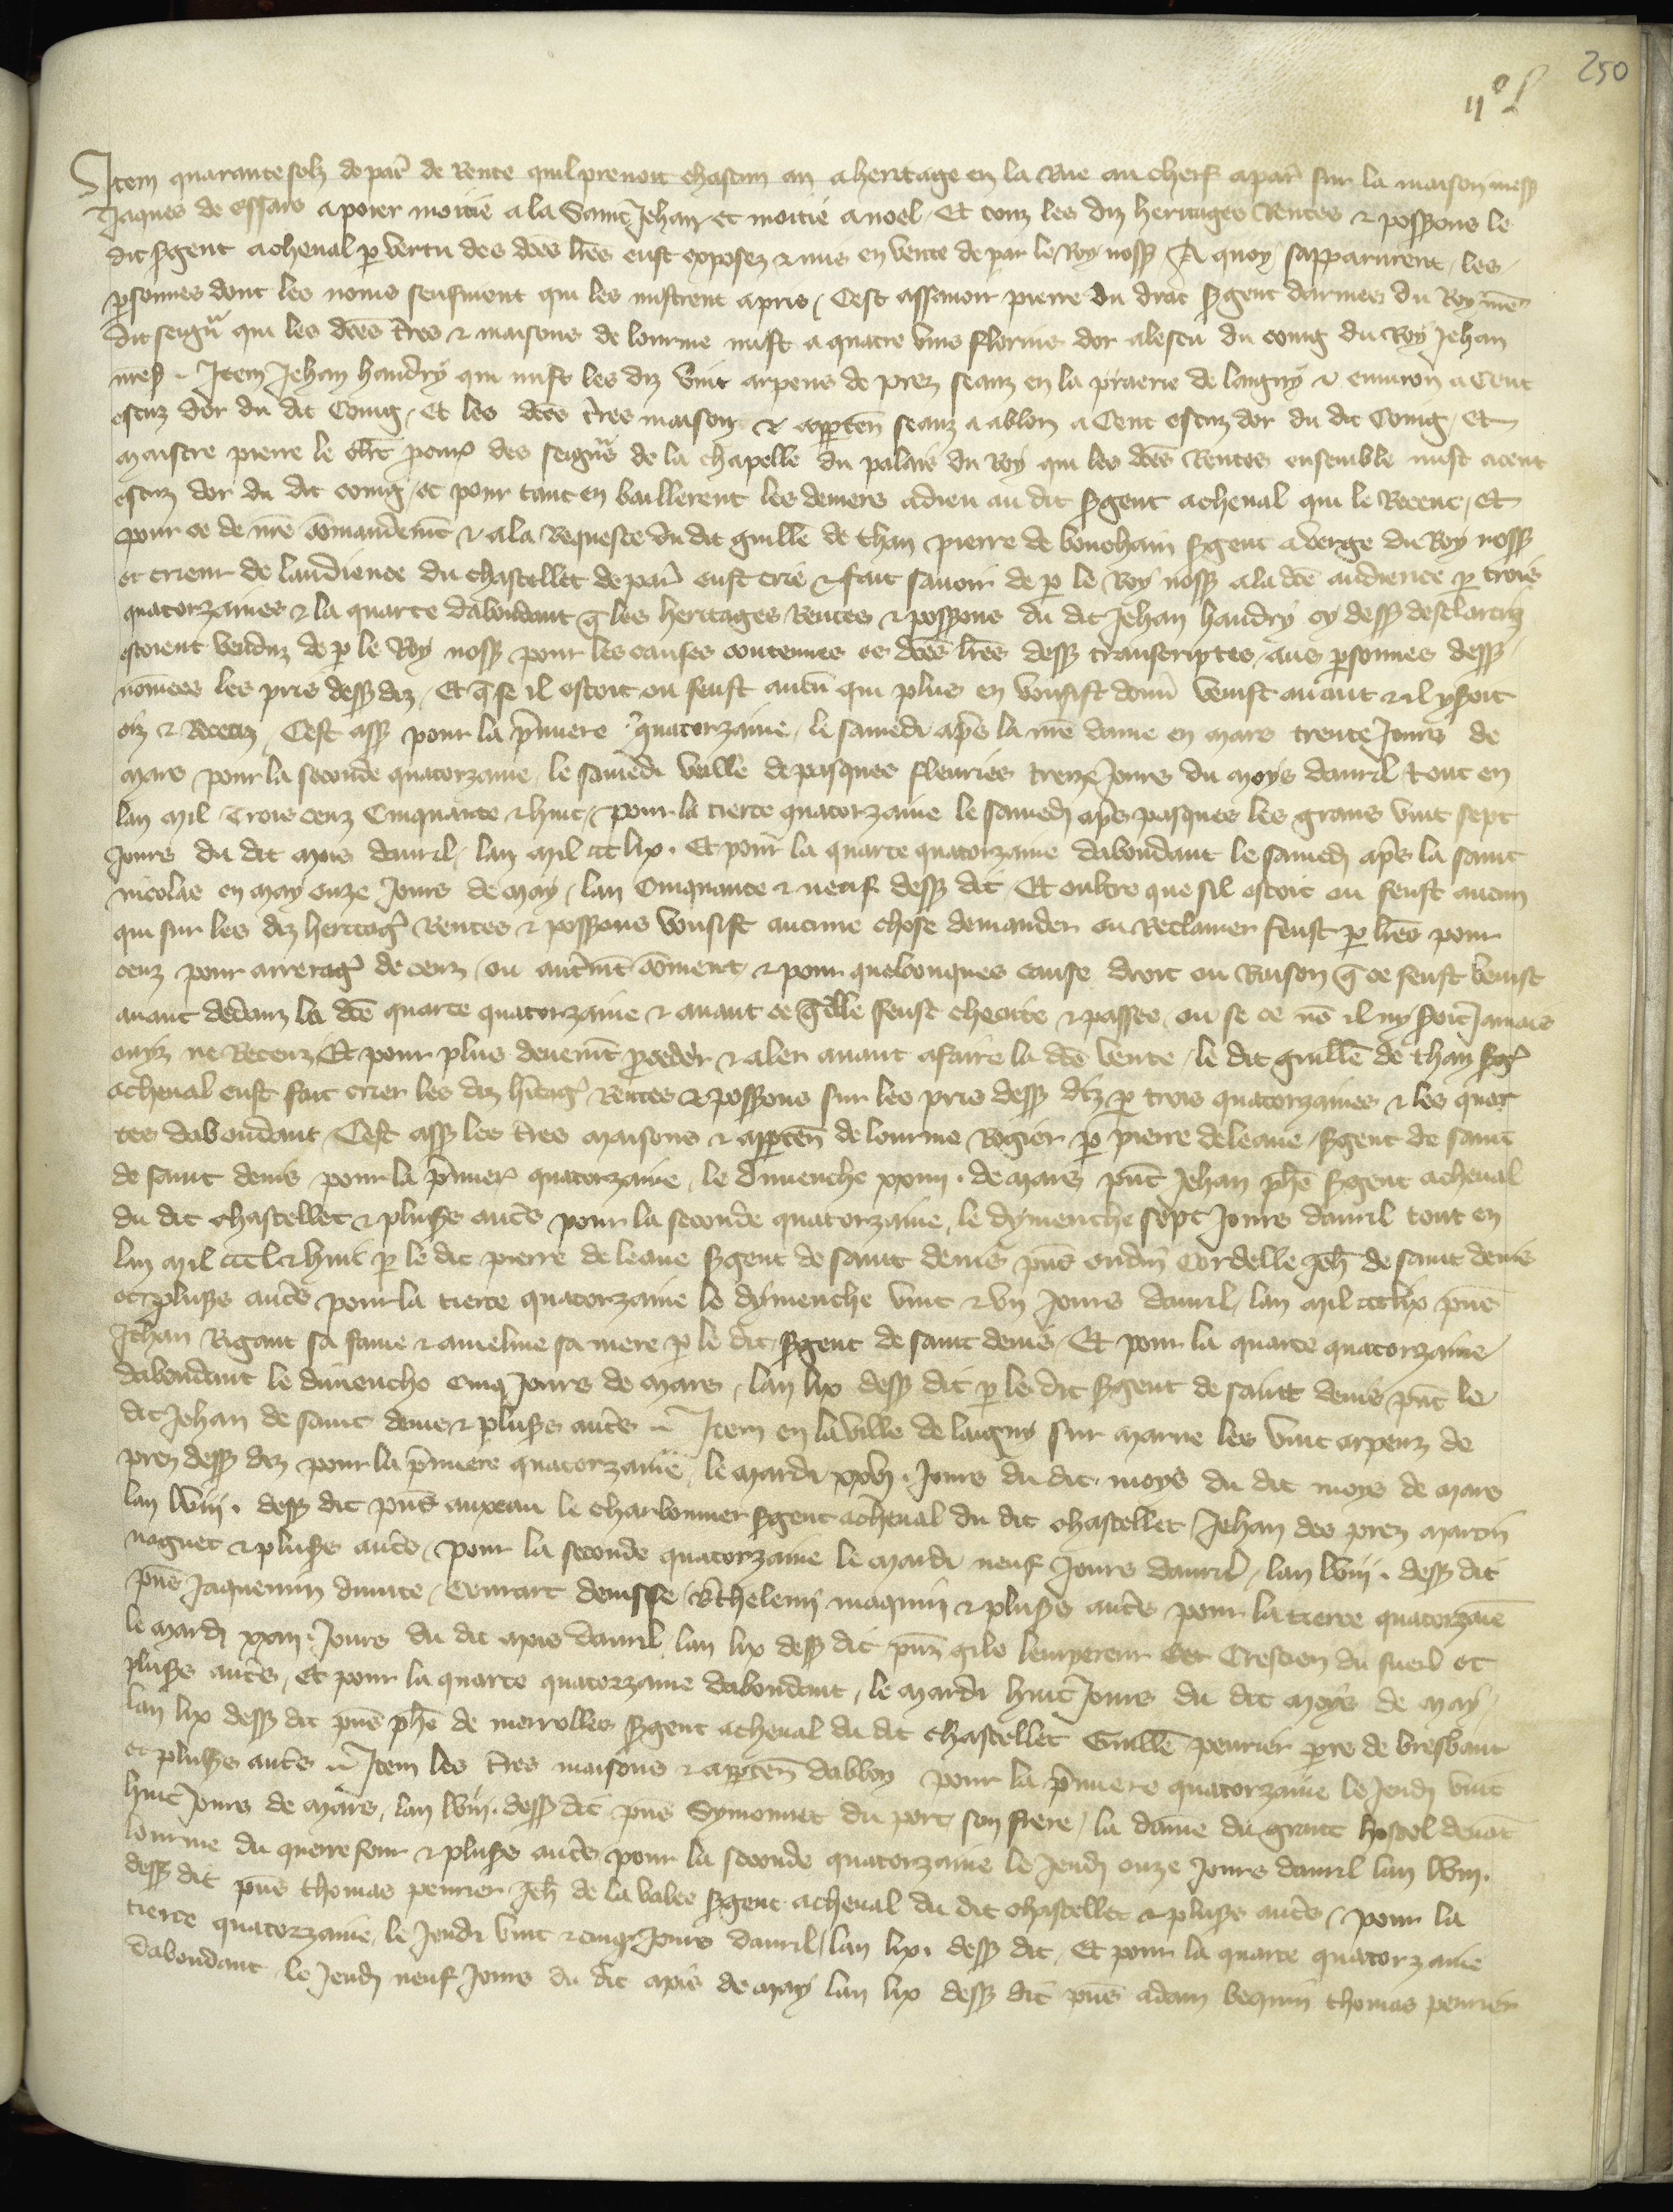 250
IIc L
Item quarante solz de par̃ de Rente quil prenoit chascun an a heritage en la Rue au cherf a par̃ sur la maison mess
Jaques de essars a poier moitie a la Saint Jehan et moitie a noel / Et touz les diz heritages Rentes & possions le
dit sgent a cheual p vertu des dces lres eust exposez & mis en vente de par le Roy noss / A quoy sapparurent les
psonnes dont les noms sensuient qui les mistrent a pris / Cest assauoir pierre du drac sgent darmes du Roy nre
dit seigñ qui les dces tres & maisons de lourme mist a quatre vins florins dor a lescu du coing du Roy Jehan
ness . Item Jehan haudry qui mist les diz vint arpens de prez seanz en la praerie de laigny & enuiron a Cent
escuz dor du dit Coing / Et les dces tres maison & apparten seanz a ablon a Cent escuz dor du dit Coing / Et
maistre pierre le pour des seigñs de la chapelle du palais du Roy qui les dces Rentes ensemble mist a cent
escuz dor du dit coing / et pour tant en baillerent les deniers a dieu au dit sgent a cheual qui le Receut / Et
pour ce de nre cõmandemt & a la Requeste du dit guille de than pierre de bouchain sgent a verge du Roy noss
et crieur de laudience du chastellet de par̃ eust crie & fait sauoir de p le Roy noss a la dce audience p trois
quatorzaines & la quarte dabondant q les heritages Rentes & possions du dit Jehan haudry cy dess desclariez
estoient venduz de p le Roy noss pour les causes contenues es dces lres dess transcriptes / aus psonnes dess
nõmees les pris dess diz / Et q se il estoit ou feust aucũ qui plus en vousist donñ venist auant & il y soit
oiz & Receuz / Cest ass pour la pmiere quatorzaine / le samedi aps la nre dame en mars trente Jours de
mars pour la seconde quatorzaine / le samedi veille de pasques fleuries treze Jours du moys dauril / tout en
lan mil Trois cenz Cinquante & huit / pour la tierce quatorzaine le samedi aps pasques les grans vint sept
Jours du dit mois dauril / lan mil ccc lix . Et pour la quarte quatorzaine dabondant le samedi aps la saint
nicolas en may onze Jours de may / lan Cinquante & neuf dess dit / Et oultre que sil estoit ou feust aucun
qui sur les diz heritag Rentes & possions vousist aucune chose demander ou Reclamer feust p lres pour
cenz pour arrerag de cenz / ou autremt cõment / & pour quelconques cause droit ou Raison q ce feust venist
auant dedanz la dce quarte quatorzaine & auant ce qlle feust cheoite & passee / ou se ce nõ il ny soit Jamais
oiyz ne Receuz / Et pour plus deuemt pceder & aler auant a faire la dce vente / le dit guille de than sgt
a cheual eust fait crier les diz heritag Rentes & possions sur les pris dess diz p trois quatorzaines & les quar
tes dabondant / Cest ass les tres maisons & apparten de lourme Rogier p pierre de leaue / sgent de saint
de saint denis / pour la pmier quatorzaine / le dimenche xxiiii . de mars pñt Jehan phe sgent a cheual
du dit chastellet & pluss autes pour la seconde quatorzaine / le dymenche sept Jours dauril tout en
lan mil ccc l & huit p le dit pierre de leaue sgent de saint denis pñs oudin Cordelle Jeh de saint denis
et pluss autes pour la tierce quatorzaine le dymenche vint & vn Jours dauril / lan mil ccc lix pñs
Jehan Rigaut sa fame & ameline sa mere p le dit sgent de saint denis / Et pour la quarte quatorzaine
dabondant le dimenche cinq Jours de mars / lan lix dess dit p le dit sgent de saint denis pñt le
dit Jehan de saint denis & pluss autes .. Item en la ville de laigny sur marne les vint arpenz de
prez dess diz pour la pmiere quatorzaine / le mardi xxvj . Jours du dit moys du dit moys de mars
lan lviij . dess dit pñs auxeau le charbonnier sgent a cheual du dit chastellet / Jehan des prez martin
noguet & pluss autes / pour la seconde quatorzaine le mardi neuf Jours dauril / lan lviij . dess dit
pñs Jaquemin / Contart denisse / Bthelemi maquin & pluss autes pour la tierce quatorzaie
le mardi xxiij . Jours du dit mois dauril lan lix dess dit pñs gile lempereur Crestien du sueil et
pluss autes / et pour la quarte quatorzaine dabondant / le mardi huit Jours du dit moys de may /
lan lix dess dit pñs phe de merrolles sgent a cheual du dit chastellet Guille peurier pre de bresbant
et pluss autes .. Item les tres maisons & apparten dablon pour la pmiere quatorzaine le Jeudi vint
huit Jours de mars / lan lviij . dess dit pñs Symonnet du port / son frere / la dame du grant hostel deuãt
lourme du querrefour & pluss autes pour la seconde quatorzaine le Jeudi onze Jours dauril lan lviij .
dess dit pñs thomas peurier Jeh de la valee sgent a cheual du dit chastellet & pluss autes / pour la
tierce quatorzaine / le Jeudi vint & cinq Jours dauril / lan lix . dess dit / Et pour la quarte quatorzaine
dabondant / le Jeudi neuf Jours du dit mois de may lan lix dess dit pñs adam bequin thomas peurier